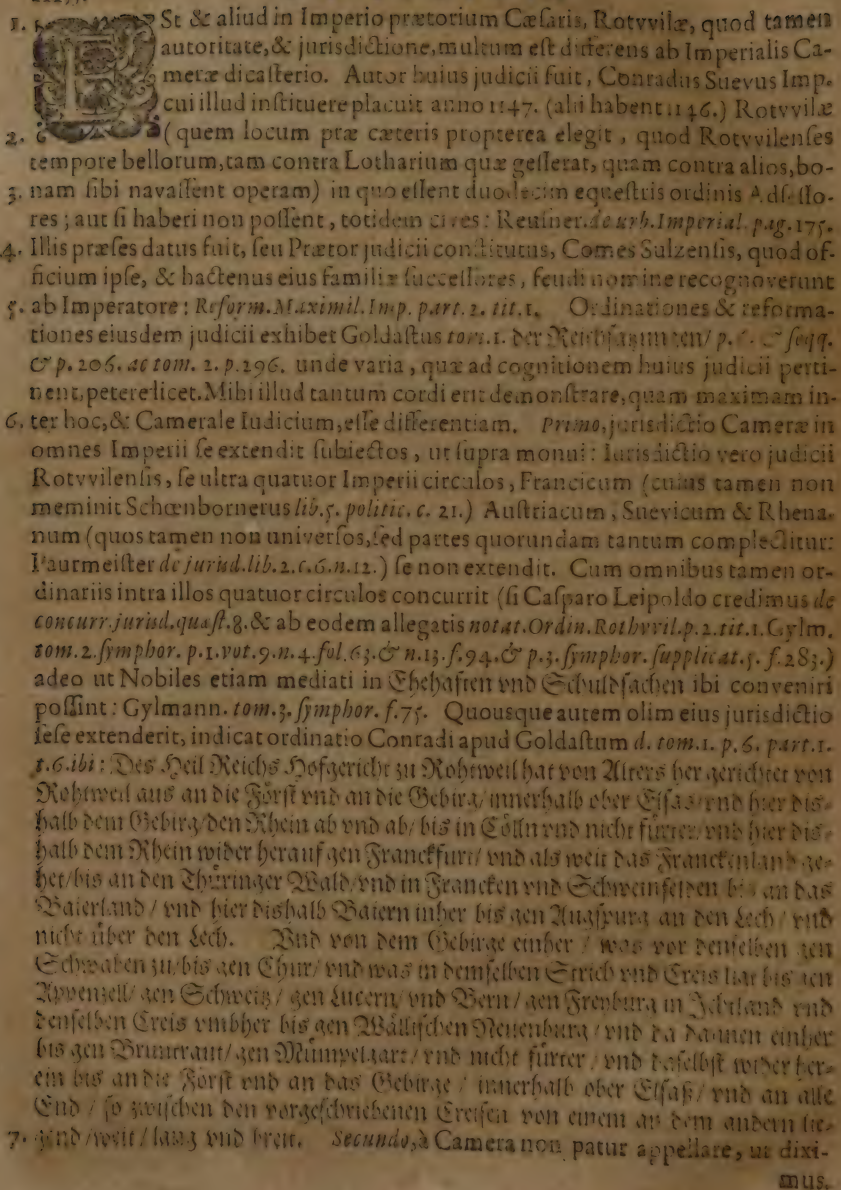 1. ESt & aliud in Imperio prætorium Cæsaris, Rotvvilæ, quod tamen
autoritate, & jurisdictione, multum est differens ab Imperialis Ca-
meræ dicasterio. Autor huius judicii fuit, Conradus Suevus Imp.
cui illud instituere placuit anno 1147. (alii habent 1146.) Rotvvilæ
2. (quem locum præ cæteris propterea elegit, quod Rotvvilenses
tempore bellorum, tam contra Lotharium quæ gesserat, quam contra alios, bo-
3. nam sibi navassent operam) in quo essent duodecim equestris ordinis Adsesso-
res; aut si haberi non possent, totidem cives: Reusner. de urb. Imperial. pag. 175.
4. Illis præses datus fuit, seu Prætor judicii constitutus, Comes Sulzensis, quod of-
ficium ipse, & hactenus eius familiæ successores, feudi nomine recognoverunt
5. ab Imperatore: Reform. Maximil. Imp. part. 2. tit. 1. Ordinationes & reforma-
tiones eiusdem judicii exhibet Goldastus tom. 1. der Reichssatzungen/ p. & seqq.
& p. 206. ac tom. 2. p. 296. unde varia, quæ ad cognitionem huius judicii perti-
nent, petere licet. Mihi illud tantum cordi erit demonstrare, quam maximam in-
6. ter hoc, & Camerale Iudicium, esse differentiam. Primo, jurisdictio Cameræ in
omnes Imperii se extendit subiectos, ut supra monui: Iurisdictio vero judicii
Rotvvilensis, se ultra quatuor Imperii circulos, Francicum (cuius tamen non
meminit Schœnbornerus lib. 5. politic. c. 21.) Austriacum, Suevicum & Rhena-
num (quos tamen non universos, sed partes quorundam tantum complectitur:
Paurmeister de jurisd. lib. 2. c. 6. n. 12.) se non extendit. Cum omnibus tamen or-
dinariis intra illos quatuor circulos concurrit (si Casparo Leipoldo credimus de
concurr. jurisd. quæst. 8. & ab eodem allegatis notat. Ordin. Rothvvil. p. 2. tit. 1. Gylm.
tom. 2. symphor. p. 1. vot. 9. n. 4. fol. 63. & n. 13. f. 94. & p. 3. symphor. supplicat. 5. f. 283.)
adeo ut Nobiles etiam mediati in Ehehaften vnd Schuldsachen ibi conveniri
possint: Gylmann. tom. 3. symphor. f. 75. Quousque autem olim eius jurisdictio
sese extenderit, indicat ordinatio Conradi apud Goldastum d. tom. 1. p. 6. part. 1.
t. 6. ibi: Des Heil Reichs Hofgericht zu Rohtweil hat von Alters her gerichtet von
Rohtweil aus an die Först vnd an die Gebirg/ innerhalb ober Elsas/ vnd hier dis-
halb dem Gebirg/ den Rhein ab vnd ab/ bis in Cölln vnd nicht fürter/ vnd hier dis-
halb dem Rhein wider herauf gen Franckfurt/ vnd als weit das Franckenland ge-
het/ bis an den Thüringer Wald/ vnd in Francken vnd Schweinfelden bis an das
Baierland / vnd hier dishalb Baiern inher bis gen Augspurg an den Lech / vnd
nicht über den Lech. Vnd von dem Gebirge einher / was vor denselben gen
Schwaben zu/ bis gen Chur/ vnd was in demselben Strich vnd Creis liat bis gen
Appenzell/ gen Schweitz / gen Lucern/ vnd Bern / gen Freyburg in Jchtland vnd
denselben Creis vmbher bis gen Wällischen Neuenburg / vnd da dannen einher
bis gen Bruntraut/ gen Mümpelgart/ vnd nicht fürter / vnd daselbst wider her-
ein bis an die Först vnd an das Gebirge / innerhalb ober Elsaß/ vnd an alle
End / so zwischen den vorgeschriebenen Creisen von einem an dem andern lie-
7. gend/ weit / lang vnd breit. Secundo, à Camera non patur appellare, ut dixi-
mus.